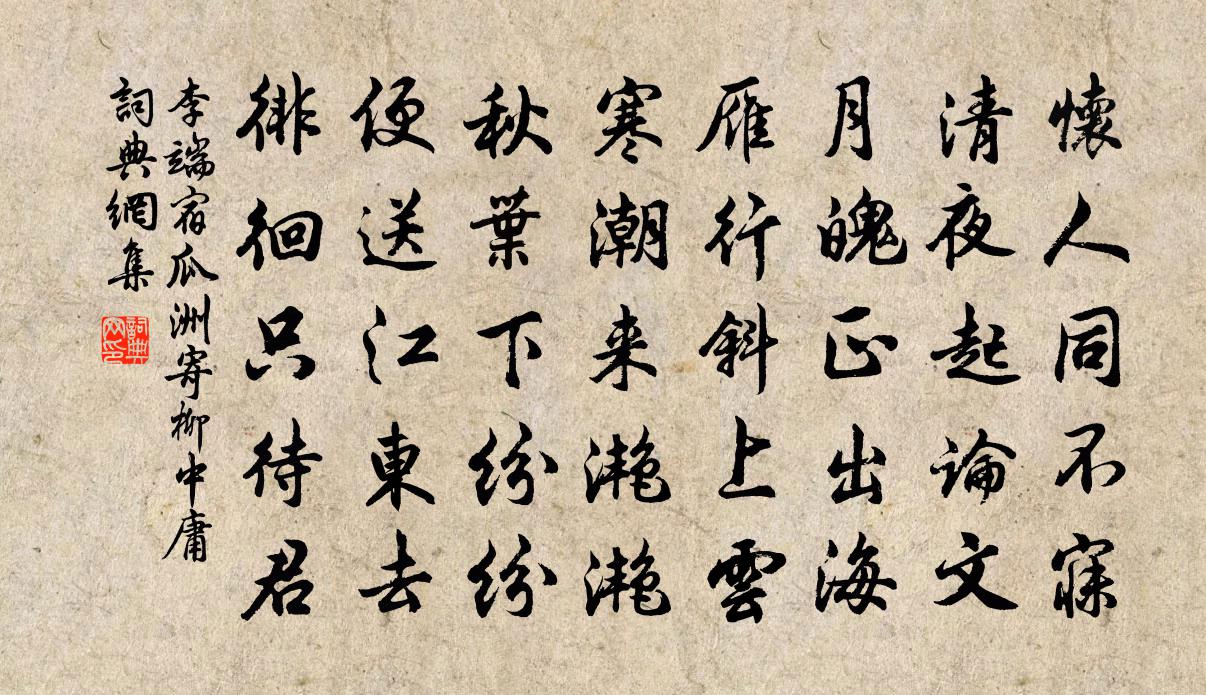 懷人同不寐
清夜起論文
月魄正出海
雁行斜上雲
寒潮来灔灔
秋葉下紛紛
便送江東去
徘徊只待君
李端宿瓜洲寄柳中庸
詞典網集
詞典网印